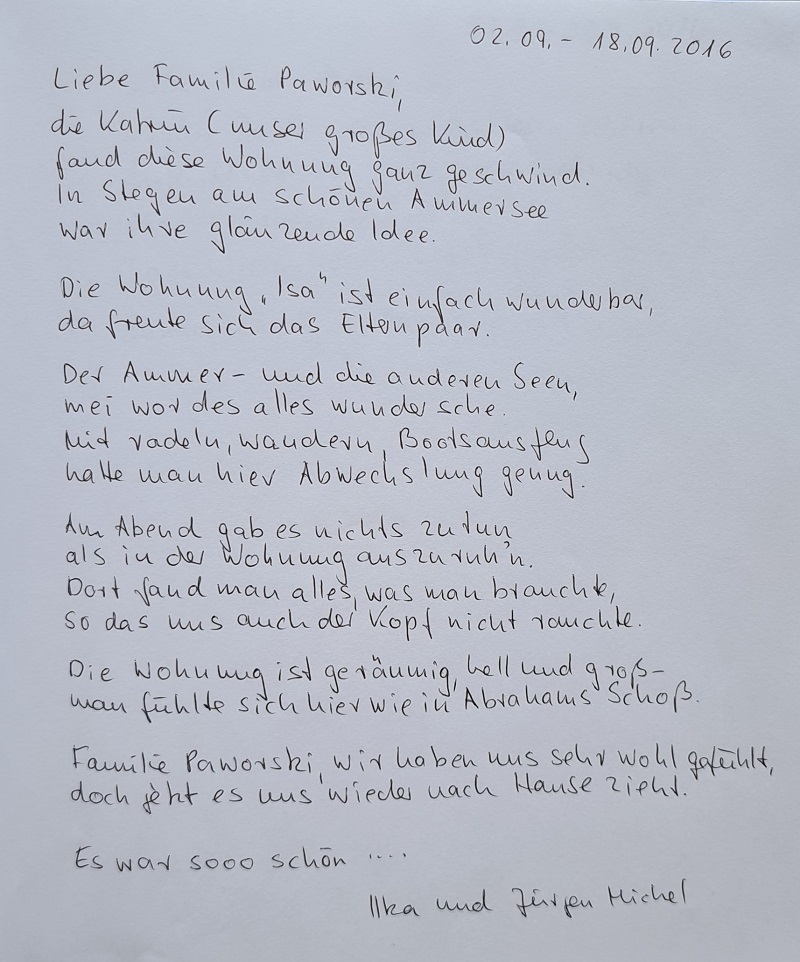 02.09. - 18.09.2016
Liebe Familie Paworski,
die Katrin (unser großes Kind)
fand diese Wohnung ganz geschwind.
In Stegen am schönen Ammersee
war ihre glänzende Idee.
Die Wohnung „Isa“ ist einfach wunderbar,
da freute sich das Elternpaar.
Der Ammer- und die anderen Seen,
mei wor des alles wunder sche.
Mit radeln, wandern, Bootsausflug
hatte man hier Abwechslung genug.
Am Abend gab es nichts zu tun
als in der Wohnung auszuruh'n.
Dort fand man alles, was man brauchte,
so das uns auch der Kopf nicht rauchte.
Die Wohnung ist geräumig, hell und groß-
man fühlte sich hier wie in Abrahams Schoß.
Familie Paworski, wir haben uns sehr wohl gefühlt,
doch jetzt es uns wieder nach Hause zieht.
Es war sooo schön ....
Ilka und Jürgen Michel